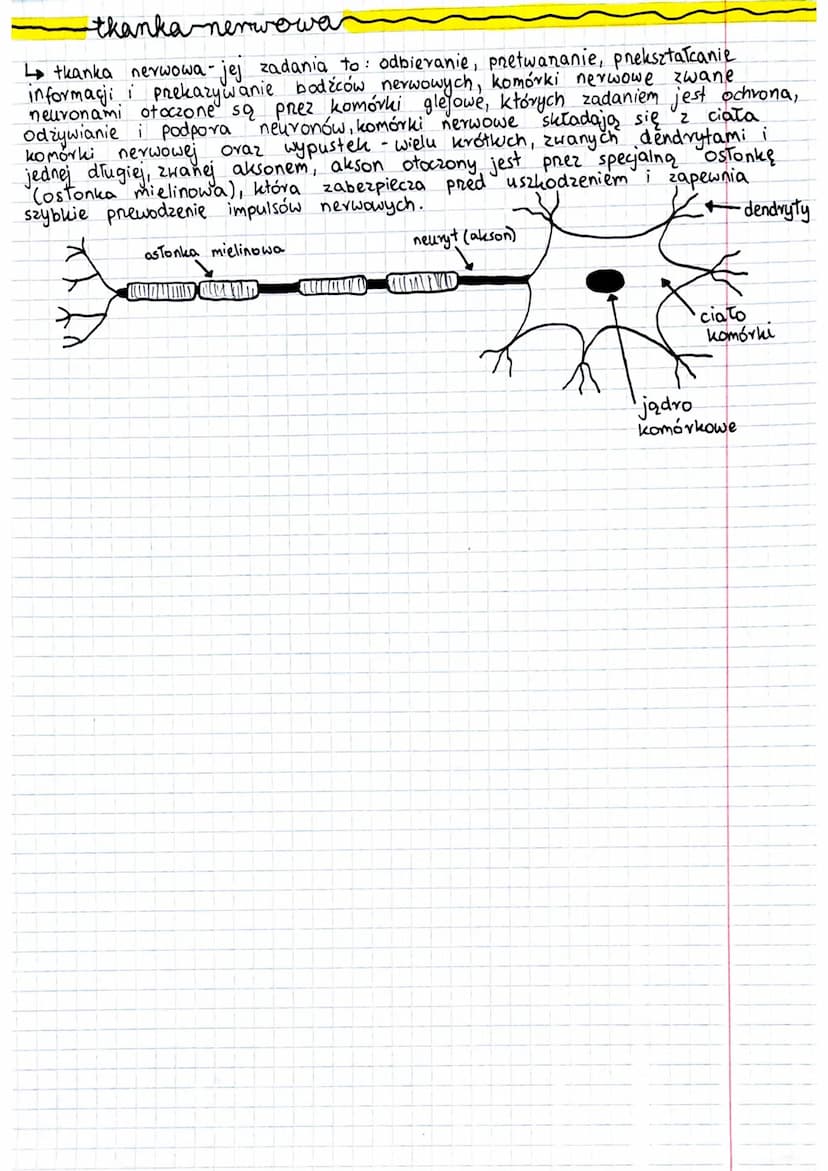 tkanka nerwowa
↳ tkanka nerwowa - jej zadania to: odbieranie, przetwarzanie, przekształcanie
informacji i przekazywanie bodźców nerwowych, komórki nerwowe zwane
neuronami otoczone są przez komórki glejowe, których zadaniem jest ochrona,
odżywianie i podpora neuronów, komórki nerwowe składają się z ciała
komórki nerwowej oraz wypustek - wielu krótkich, zwanych dendrytami i
jednej długiej, zwanej aksonem, akson otoczony jest przez specjalną osłonkę
(osłonka mielinowa), która zabezpiecza przed uszkodzeniem i zapewnia
szybkie przewodzenie impulsów nerwowych.
dendryty
neuryt (akson)
osłonka mielinowa
ciało
komórki
jądro
komórkowe